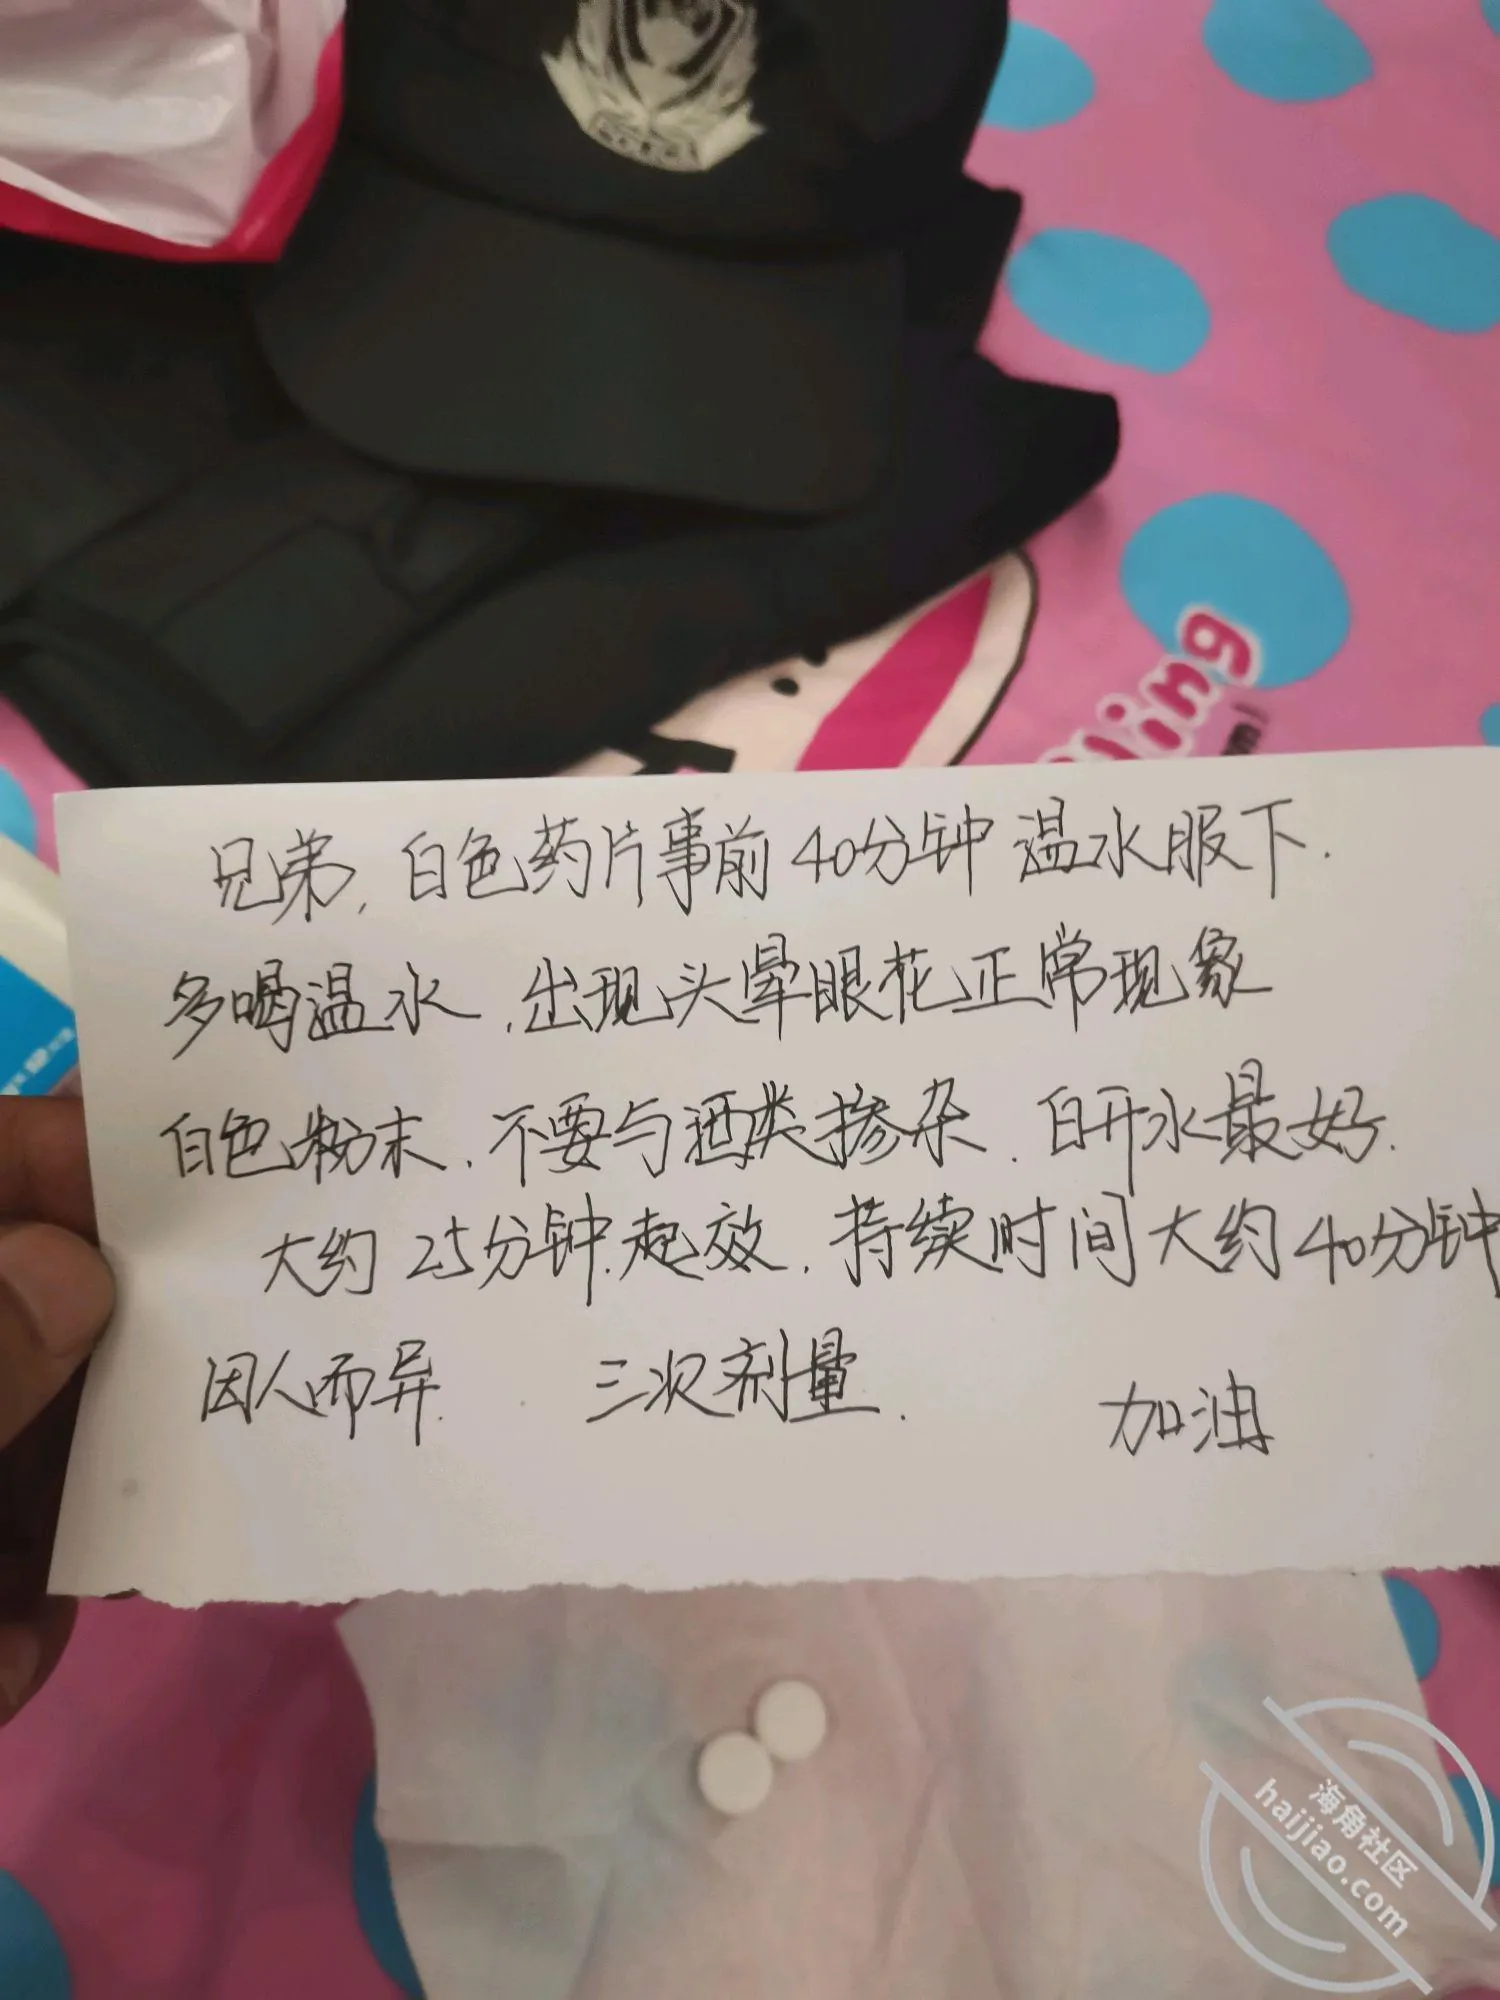 兄弟,白色药片事前40分钟温水服下.
多喝温水,出现头晕眼花正常现象
白色粉末,不要与酒类掺杂,白开水最好.
大约25分钟起效,持续时间大约40分钟
因人而异. 三次剂量. 加油
ling
海角社区
haijiao.com